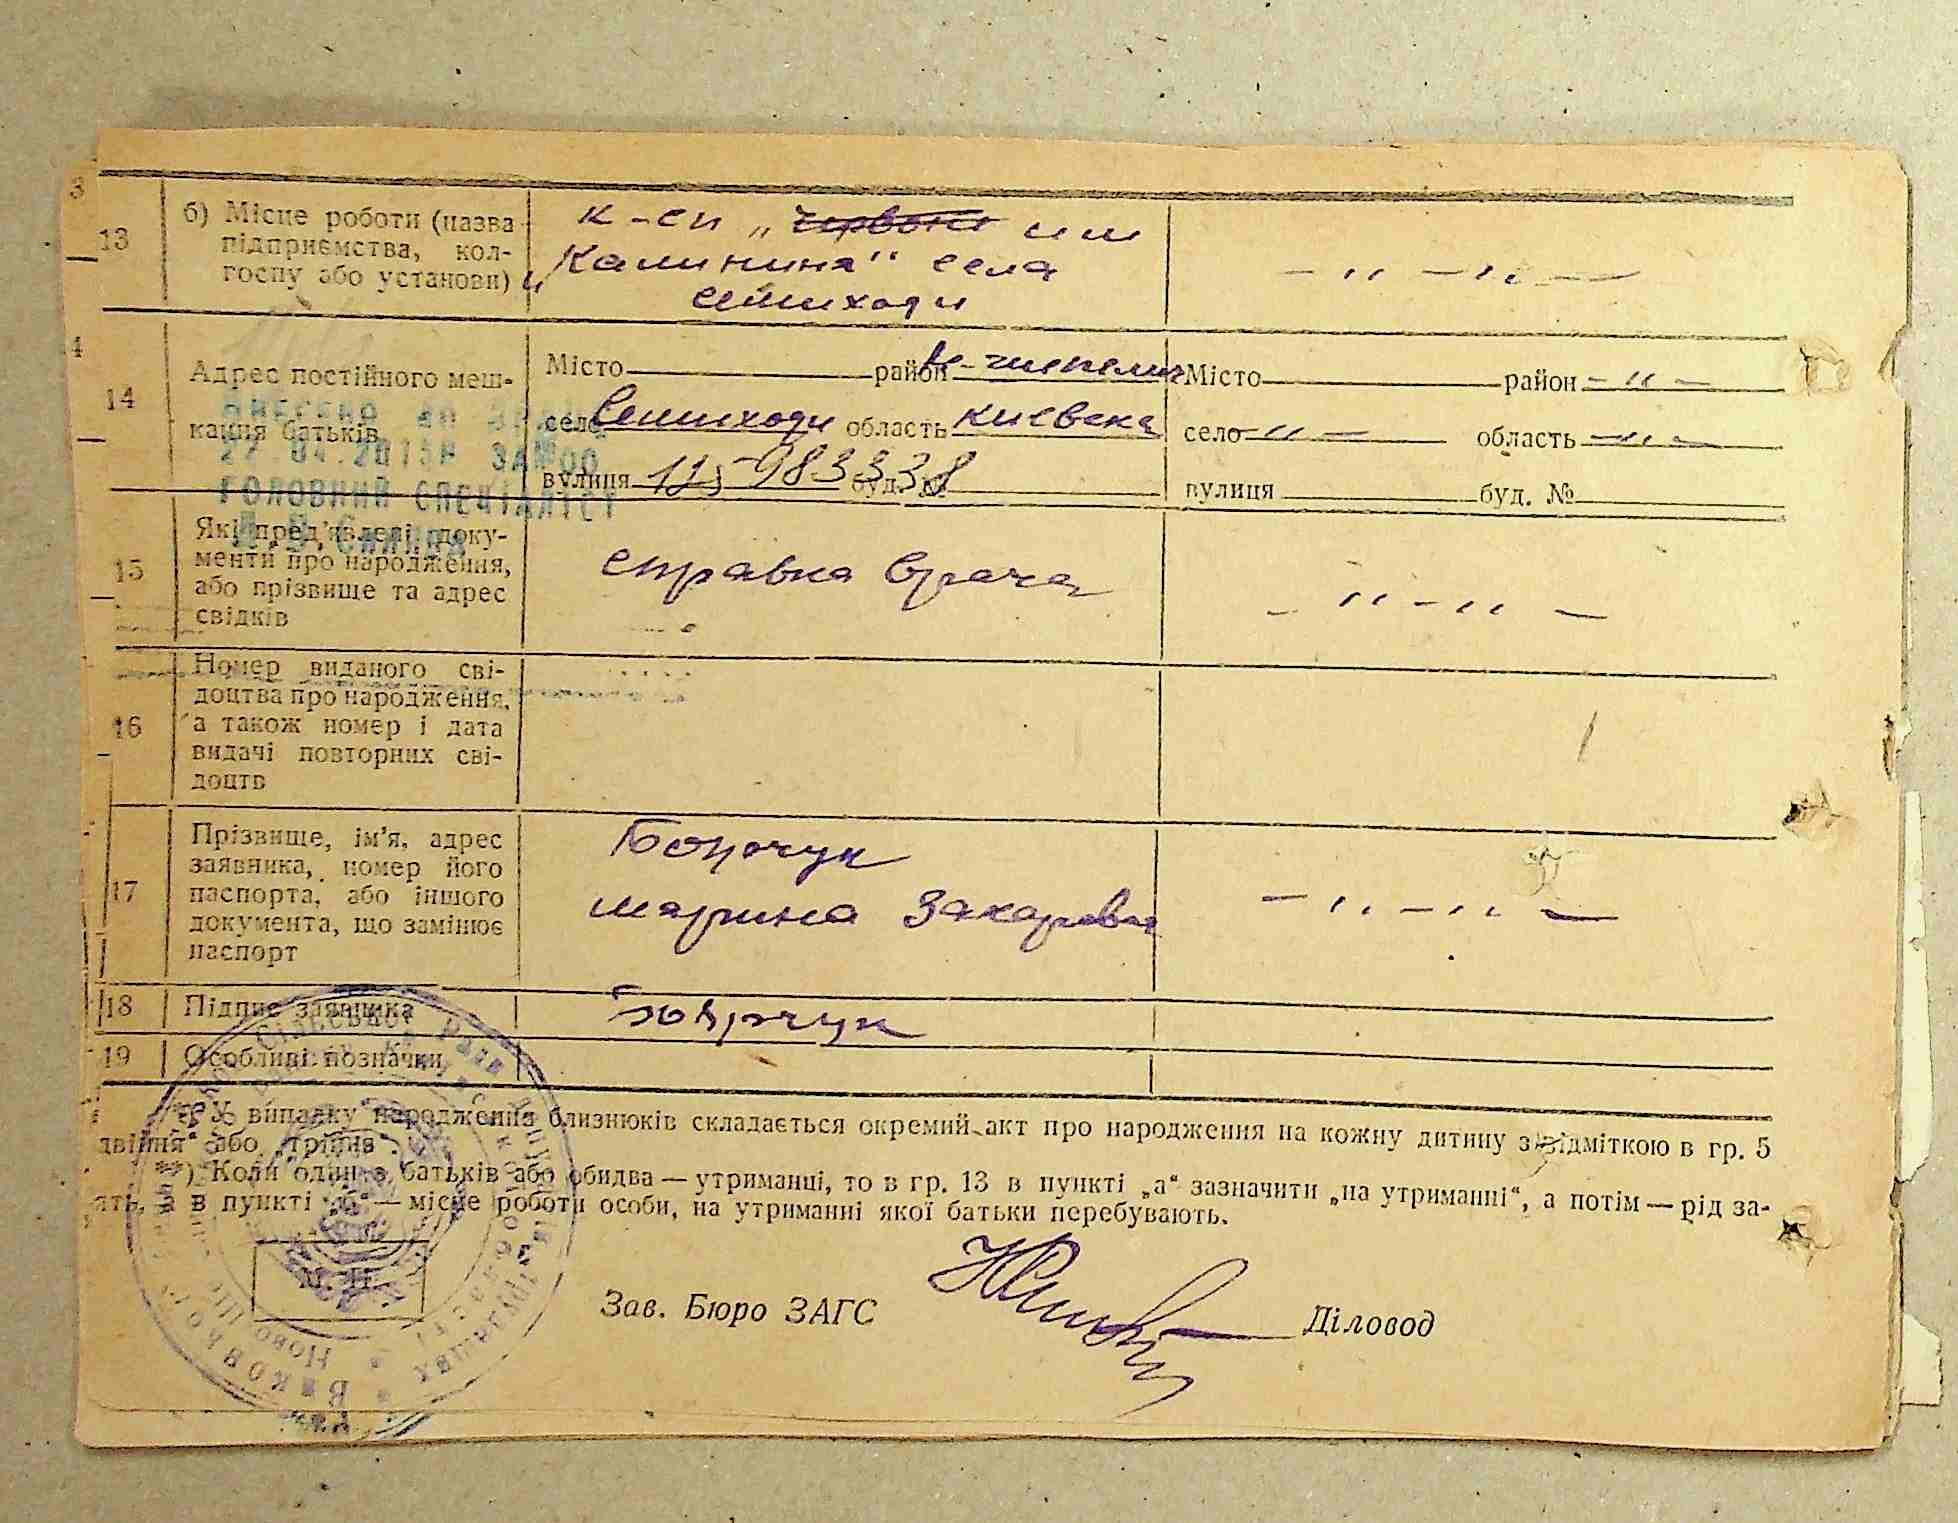 13 б) Місце роботи (назва підприємства, кол-
госпу або установи)
к-сп „червоне им
„Калинина“ села
семиходи
— „ — „ —
14 Адрес постійного меш-
кання батьків
Місто район Місто район — „ —
село Семиходи область киевска село — „ — область — „ —
вулиця 12, 983338 буд. № вулиця буд. №
22.04.2015Р ЗА №00
ГОЛОВНИЙ СПЕЦІАЛІСТ
15 Які пред'явлені доку-
менти про народження,
або прізвище та адрес
свідків
справка врача
— „ — „ —
16 Номер виданого сві-
доцтва про народження,
а також номер і дата
видачі повторних сві-
доцтв
17 Прізвище, ім'я, адрес
заявника, номер його
паспорта, або іншого
документа, що замінює
паспорт
марина Захаровна
— „ — „ —
18 Підпис заявника
19 Особливі позначки
*) У випадку народження близнюків складається окремий акт про народження на кожну дитину з відміткою в гр. 5
двійня“ або „трійня“.
) Коли один з батьків або обидва — утриманці, то в гр. 13 в пункті „а“ зазначити „на утриманні“, а потім — рід за-
ять, а в пункті „б“ — місце роботи особи, на утриманні якої батьки перебувають.
М. П.
Зав. Бюро ЗАГС Діловод